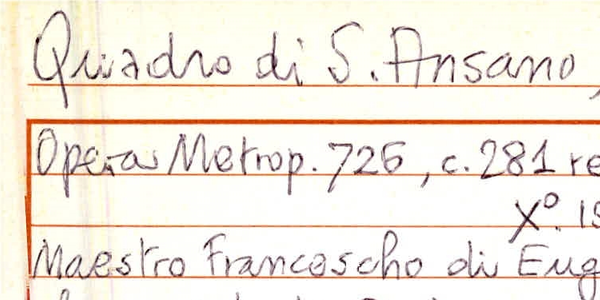 Quadro di S. Ansano,
Opera Metrop. 726, c. 281 re
X°. 15
Maestro Francescho di Eug